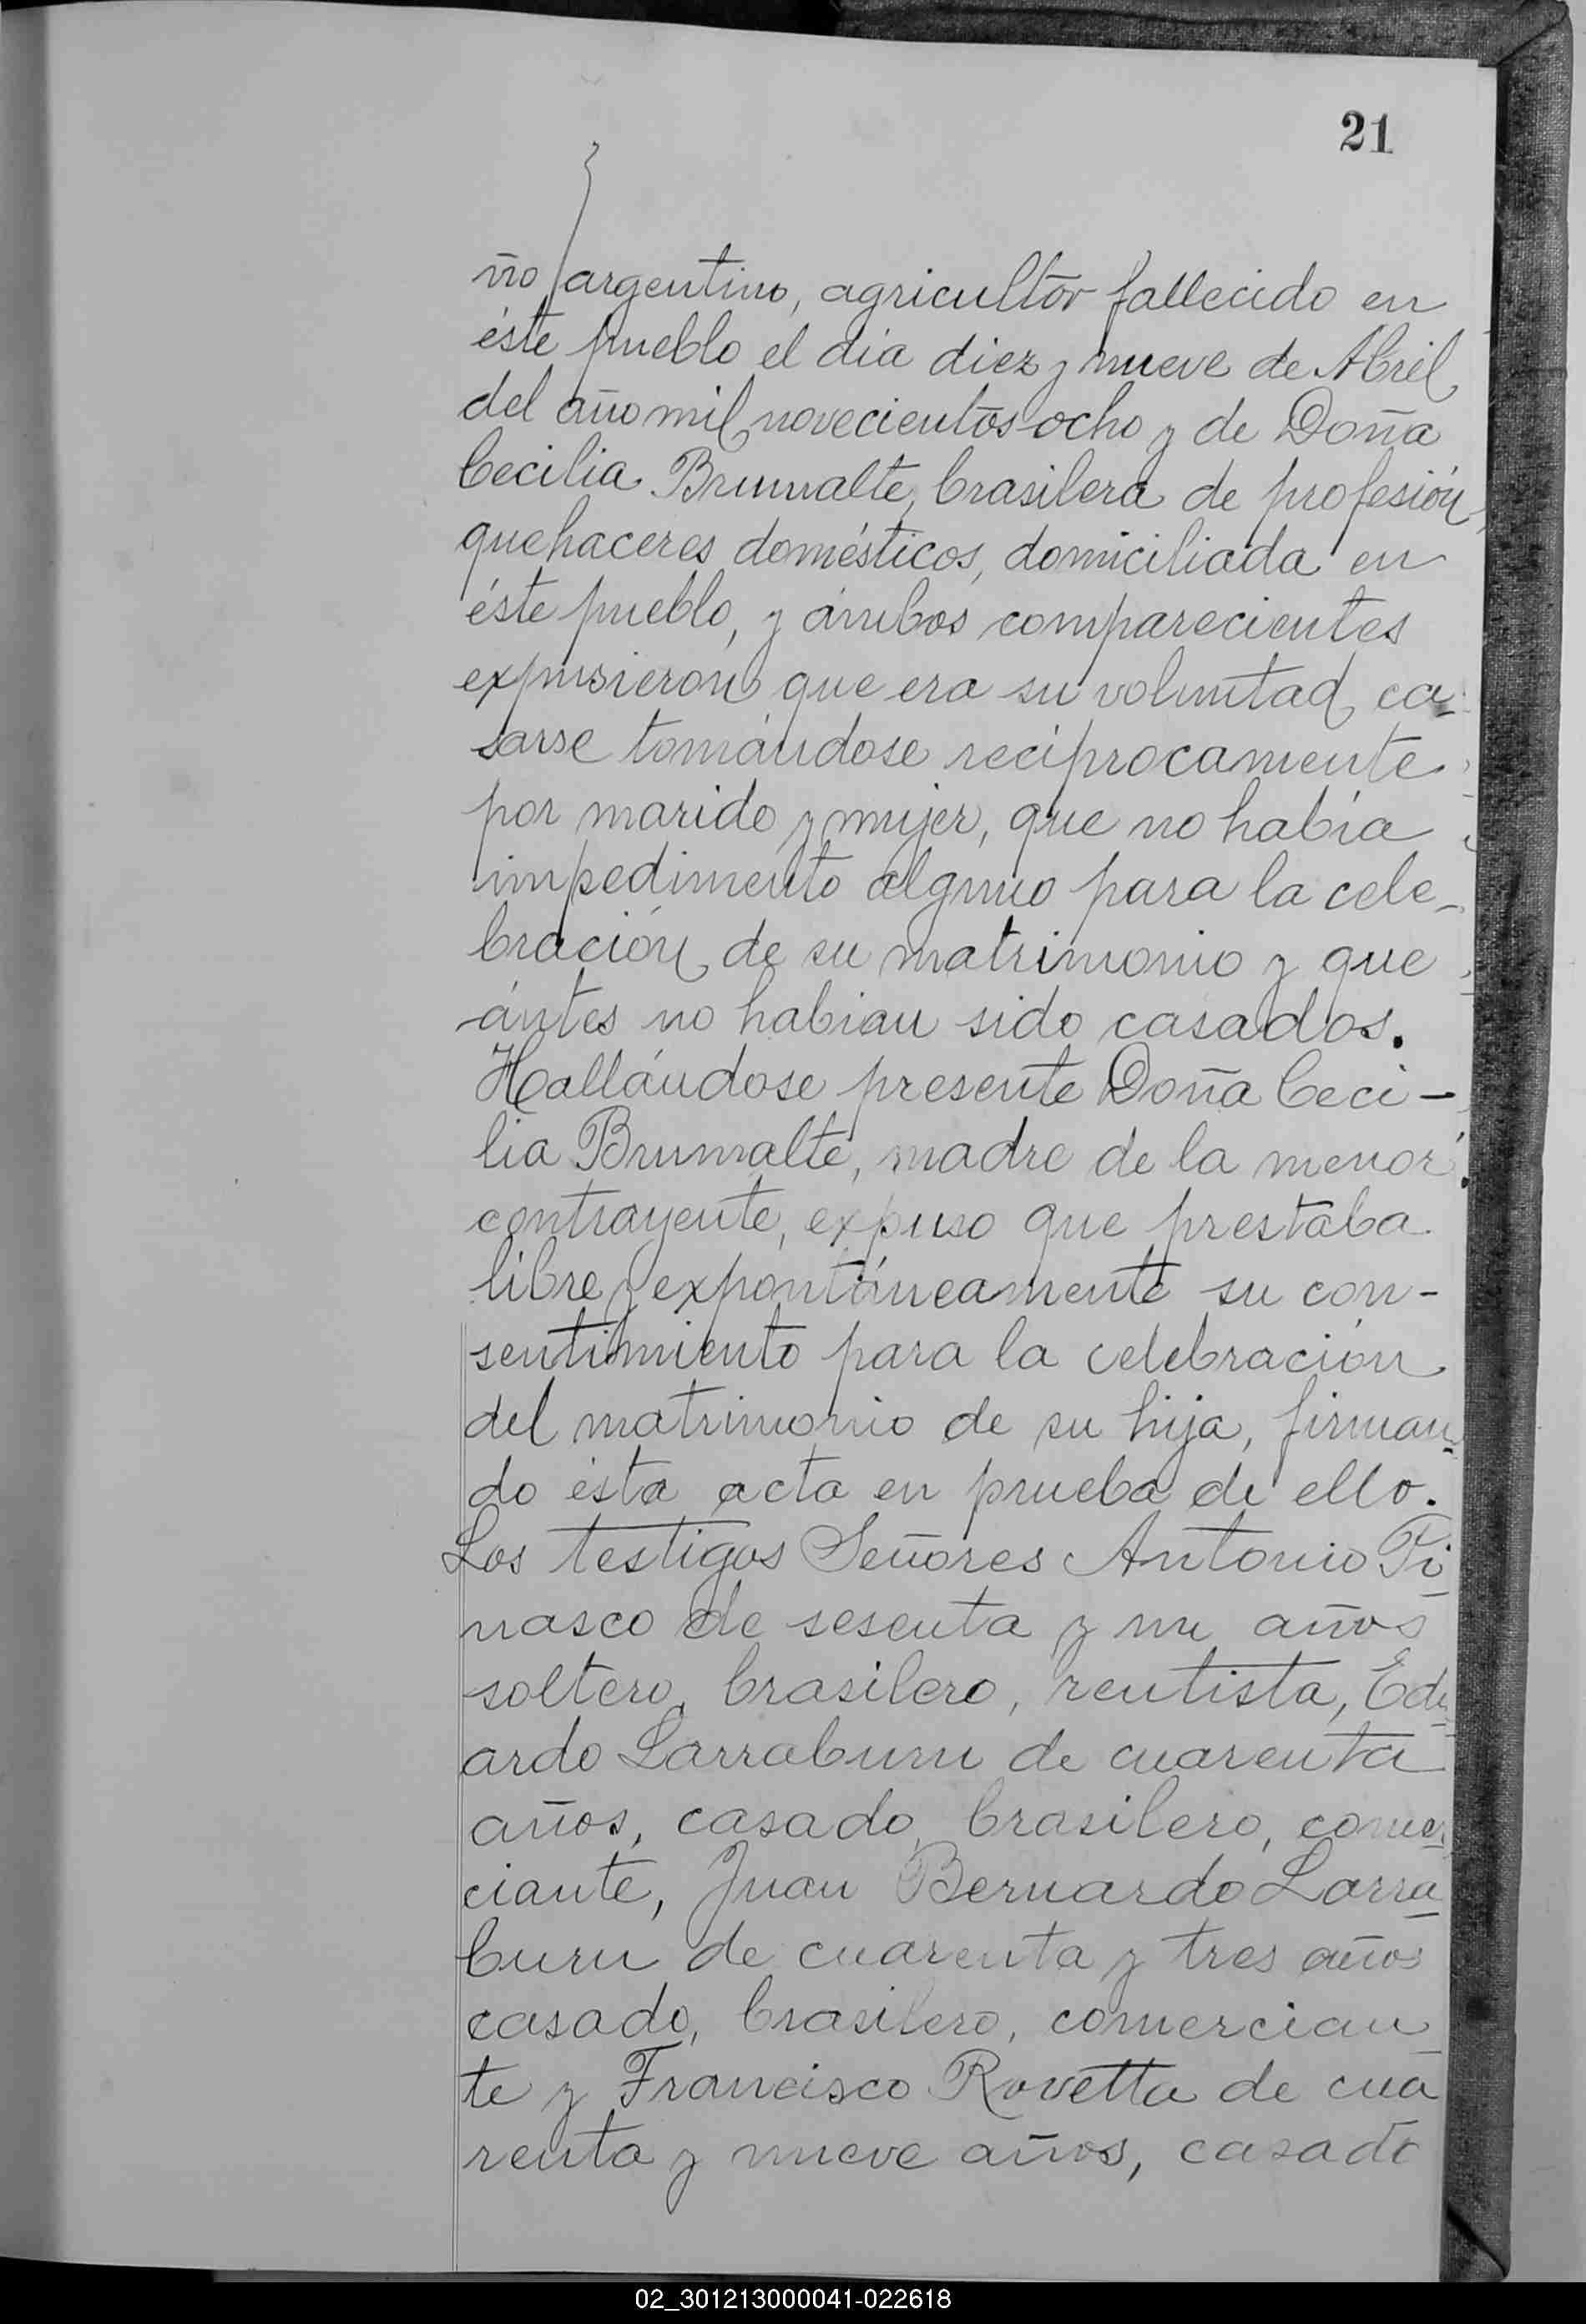 21
ño argentino, agricultor fallecido en
éste pueblo el día diez y nueve de Abril
del año mil novecientos ocho y de Doña
Cecilia Brumalte, brasilera de profesión
quehaceres domésticos, domiciliada en
éste pueblo, y ámbos comparecientes
expusieron que era su voluntad ca-
sarse tomándose recíprocamente
por marido y mujer, que no había
impedimento alguno para la cele-
bración de su matrimonio y que
ántes no habian sido casados.
Hallándose presente Doña Ceci-
lia Brumalte, madre de la menor
contrayente, expuso que prestaba
libre y expontáneamente su con-
sentimiento para la celebración
del matrimonio de su hija, firman-
do ésta acta en prueba de ello.
Los testigos Señores Antonio Pi-
nasco de sesenta y un años
soltero, brasilero, rentista, Edu-
ardo Larraburu de cuarenta
años, casado, brasilero, comer-
ciante, Juan Bernardo Larra-
buru de cuarenta y tres años
casado, brasilero, comercian-
te y Francisco Rovetta de cua
renta y nueve años, casado
02_301213000041-022618